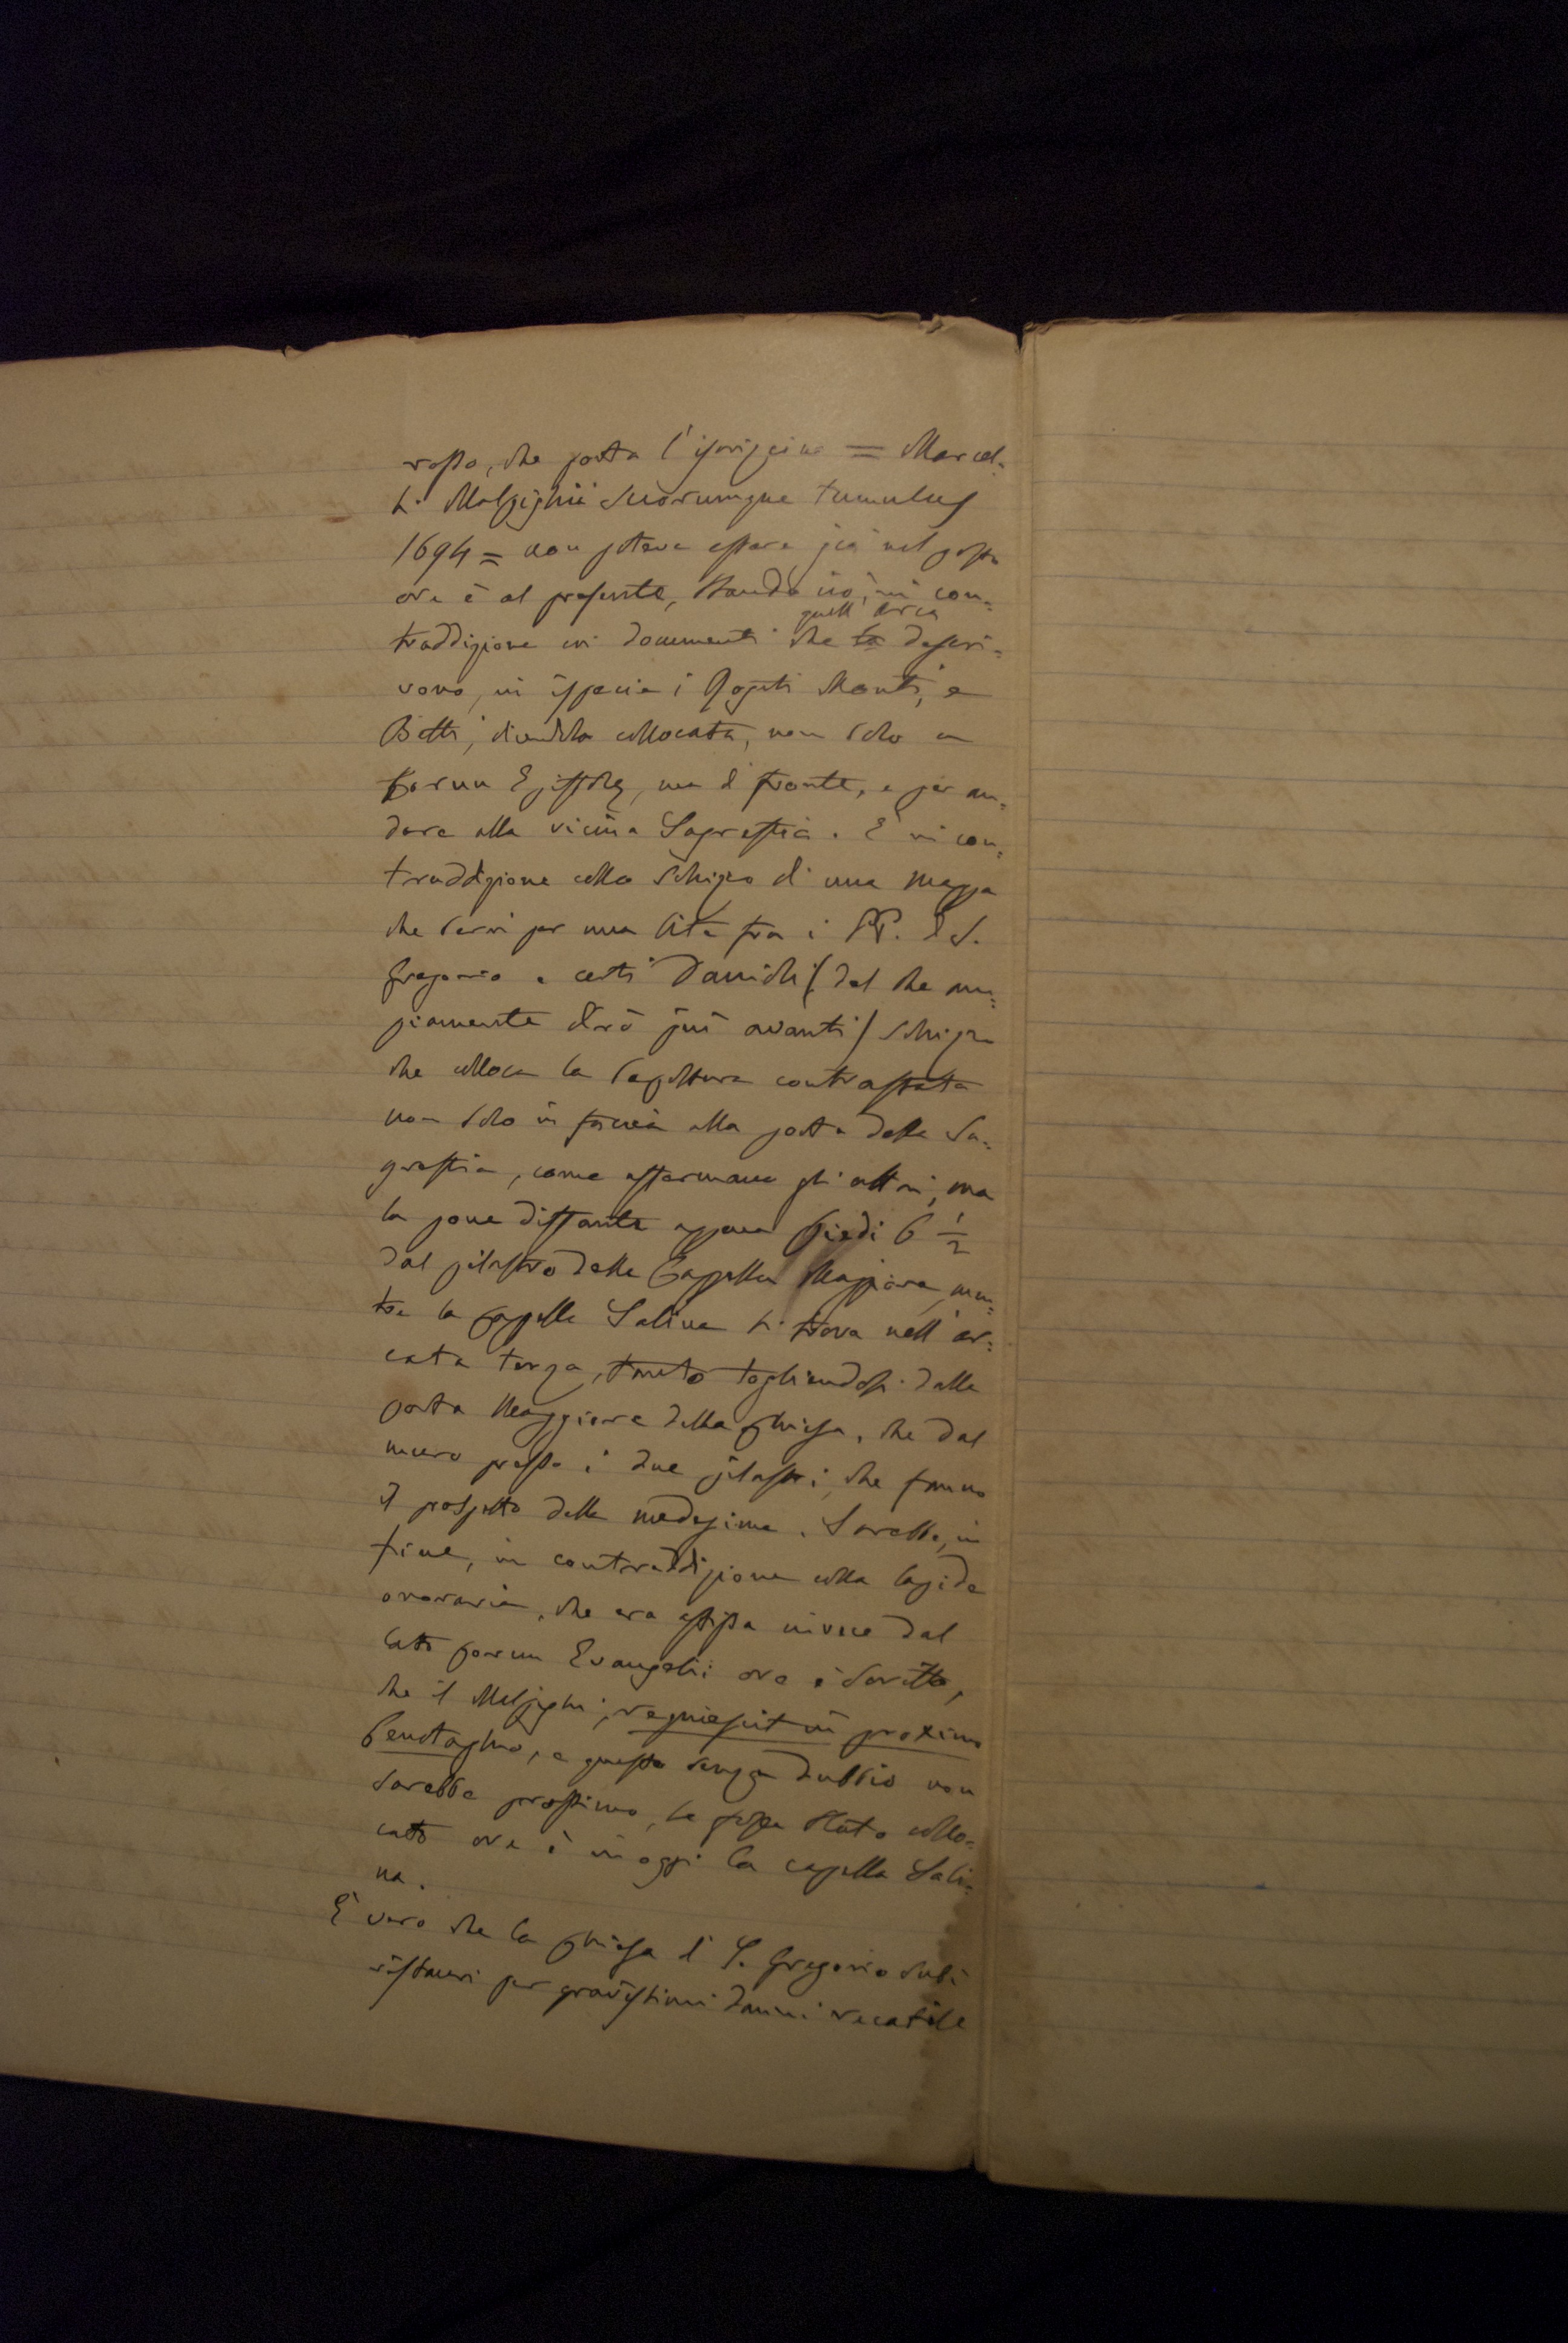 rosso, che porta l'iscrizione = Marcel-
li Malpighii suorumque tumulus
1694 = non poteva essere già nel posto
ove è al presente, stando ciò, in con=
traddizione coi documenti che quell'Arca descri=
vono, in ispecie i Rogiti Monti, e
Betti, dicendola collocata, non solo a
parun Epistolę, ma di fronte, e per an=
dare alla vicina Sagrestia. È in con=
traddizione collo schizzo di una mappa
che servì per una lite fra i PP. di S.
Gregorio e certi Davidi / del che am=
piamente dirò più avanti / schizzo
che colloca la sepoltura contrastata
non solo in faccia alla porta della Sa=
grestia, come affermano gli altri, ma
la pone distante appena piedi 6 1/2
dal pilastro della Cappella Maggiore, men=
tre la Cappella Salina si trova nell'ar=
cata terza, tanto togliendosi dalla
porta Maggiore della Chiesa, che dal
muro presso i due pilastri, che fanno
il prospetto della medesima. Sarebbe, in
fine, in contraddizione colla lapide
onoraria, che era affissa invece dal
lato parun Evangelii ove è scritto,
che il Malpighi, requiescit in proximo
Cenotaphio, e questo senza dubbio non
sarebbe prossimo, se fosse stato collo=
cato ove è in oggi la capella Sali=
na.
È vero che la Chiesa di S. Gregorio subì
ristauri per gravissimi danni recatile